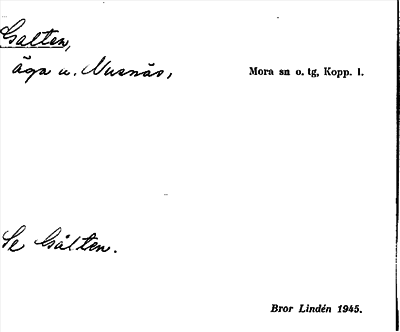 Galten,
äga u. Nusnäs,
Mora sn o. tg, Kopp. l.
Se Gålten.
Bror Lindén 1945.